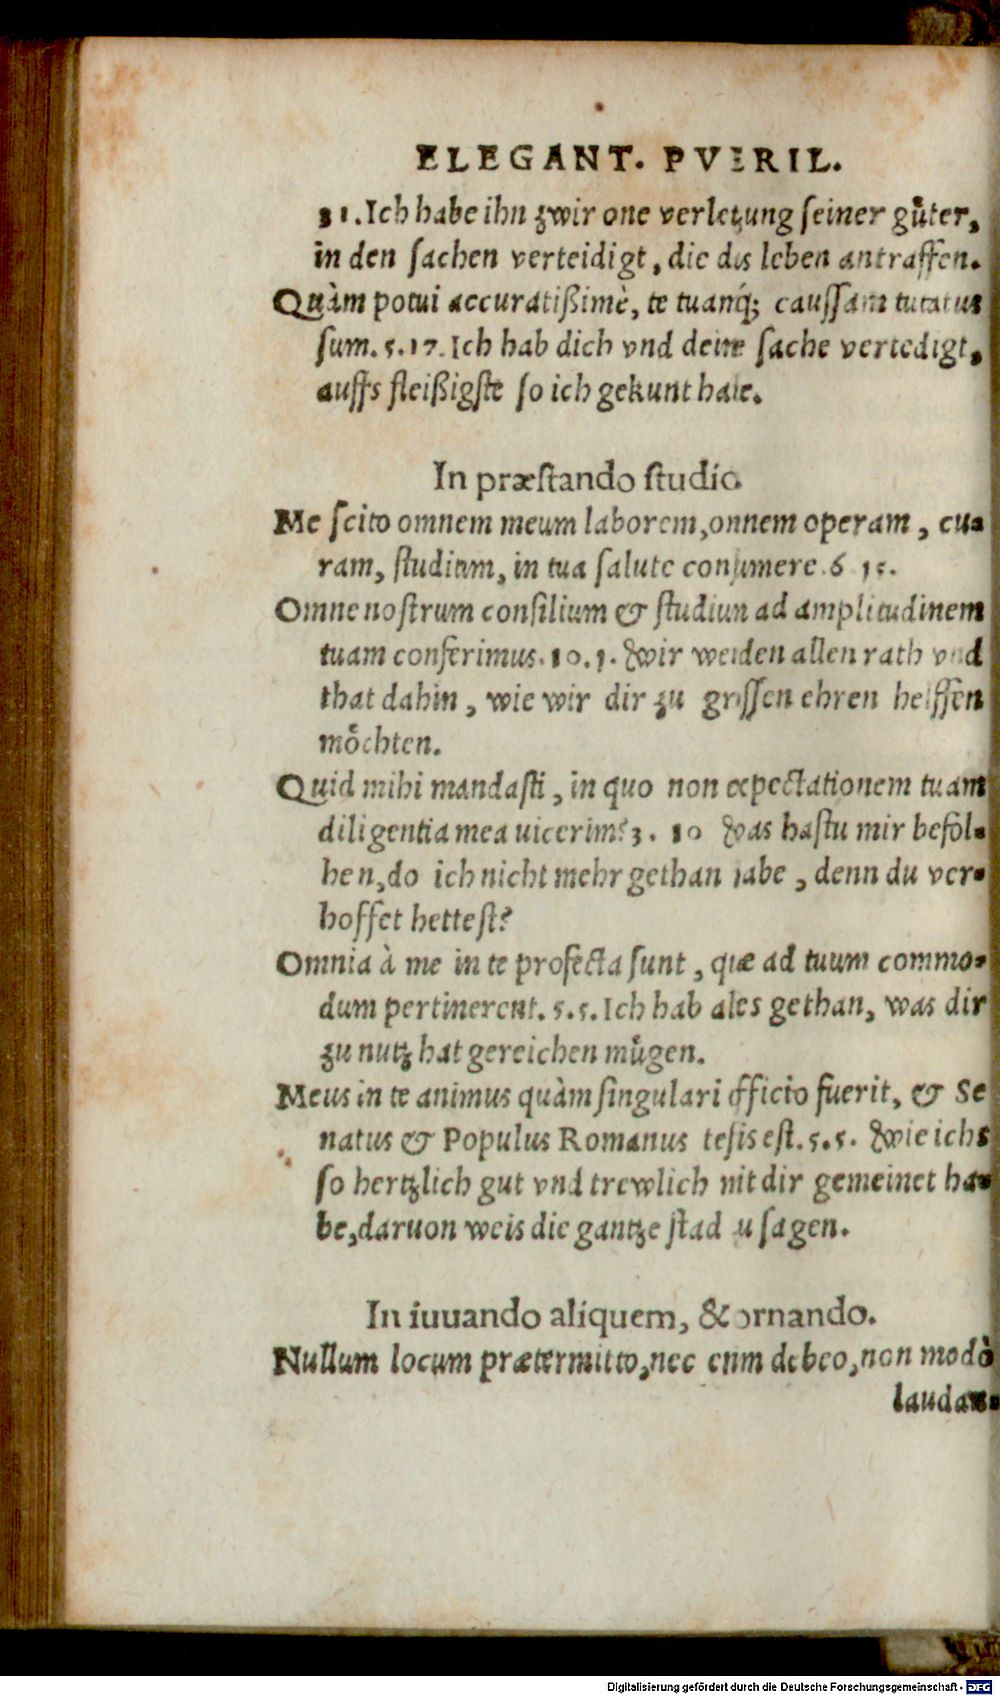 ELEGANT. PVERIL.
31. Ich habe ihn zwir one verletzung seiner gůter,
in den sachen verteidigt, die das leben antraffen.
Quàm potui accuratißimè, te tuanq́; caussam tutatus
sum. 5.17. Ich hab dich vnd deine sache vertedigt,
auffs fleißigste so ich gekunt habe.
In præstando studio.
Me scito omnem meum laborem, omnem operam, cu-
ram, studium, in tua salute consumere. 6 15.
Omne nostrum consilium & studium ad amplitudinem
tuam conferimus. 10.1. Wir wenden allen rath vnd
that dahin, wie wir dir zu grossen ehren helffen
mőchten.
Quid mihi mandasti, in quo non expectationem tuam
diligentia mea uicerim? 3. 10 Was hastu mir befol-
hen, do ich nicht mehr gethan habe, denn du ver-
hoffet hettest?
Omnia à me in te profecta sunt, quæ ad tuum commo-
dum pertinerent. 5.5. Ich hab ales gethan, was dir
zu nutz hat gereichen mügen.
Meus in te animus quàm singulari officio fuerit, & Se
natus & Populus Romanus testis est. 5.5. Wie ichs
so hertzlich gut vnd trewlich mit dir gemeinet ha-
be, daruon weis die gantze stad zu sagen.
In iuuando aliquem, & ornando.
Nullum locum prætermitto, nec enim debeo, non modò
laudan-
Digitalisierung gefördert durch die Deutsche Forschungsgemeinschaft - DFG